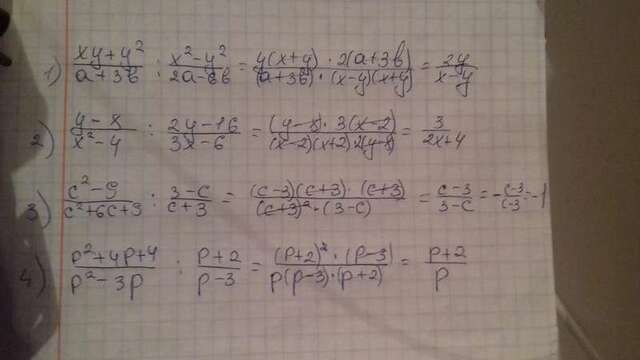 1) (xy+y²)/(a+3b) : (x²-y²)/(2a-6b) = (y(x+y)·2(a+3b))/((a+3b)·(x-y)(x+y)) = 2y/(x-y)
2) (y-8)/(x²-4) : (2y-16)/(3x-6) = ((y-8)·3(x-2))/((x-2)(x+2)·2(y-8)) = 3/(2x+4)
3) (c²-9)/(c²+6c+9) : (3-c)/(c+3) = ((c-3)(c+3)·(c+3))/((c+3)²·(3-c)) = (c-3)/(3-c) = -(c-3)/(c-3) = -1
4) (p²+4p+4)/(p²-3p) : (p+2)/(p-3) = ((p+2)²·(p-3))/(p(p-3)·(p+2)) = (p+2)/p